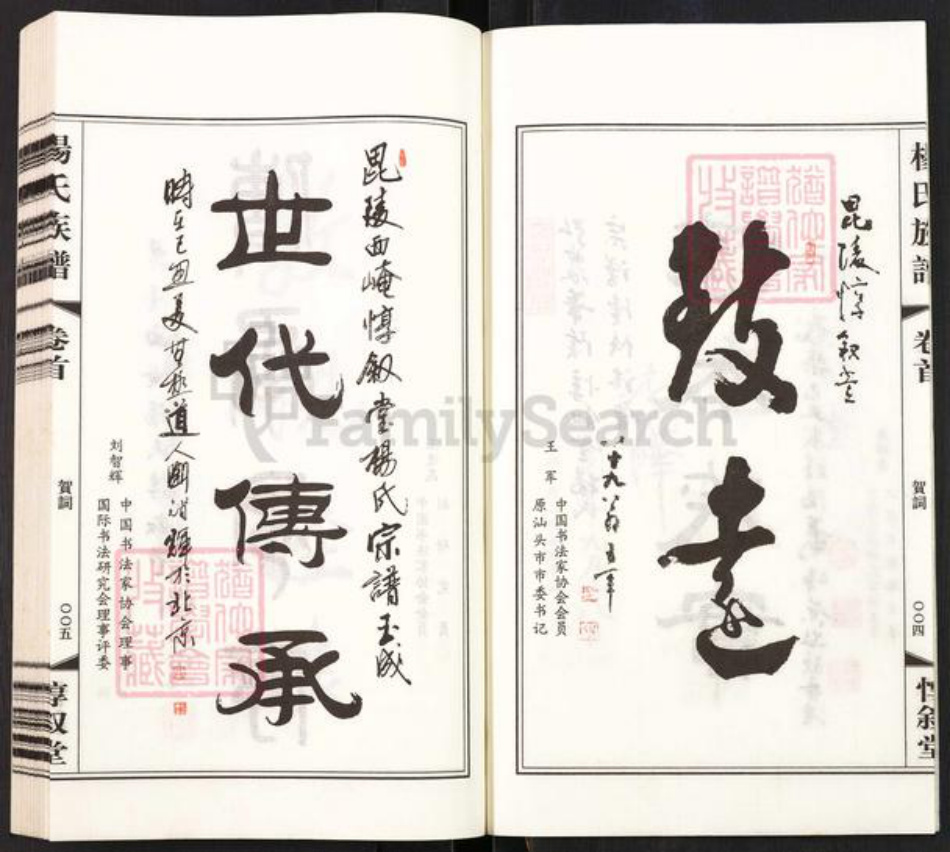 楊氏族譜
卷首
賀詞
〇〇四
惇敘堂
毘陵惇叙堂
致遠
八十九翁王军
王军
中国书法家协会会员
原汕头市市委书记
猶他家譜學會收藏
FamilySearch
毘陵西崦惇叙堂楊氏宗譜玉成
世代傳承
道人
於北京
刘智辉
中国书法家协会理事
国际书法研究会理事评委
猶他家譜學會收藏
楊氏族譜
卷首
賀詞
〇〇五
惇叙堂